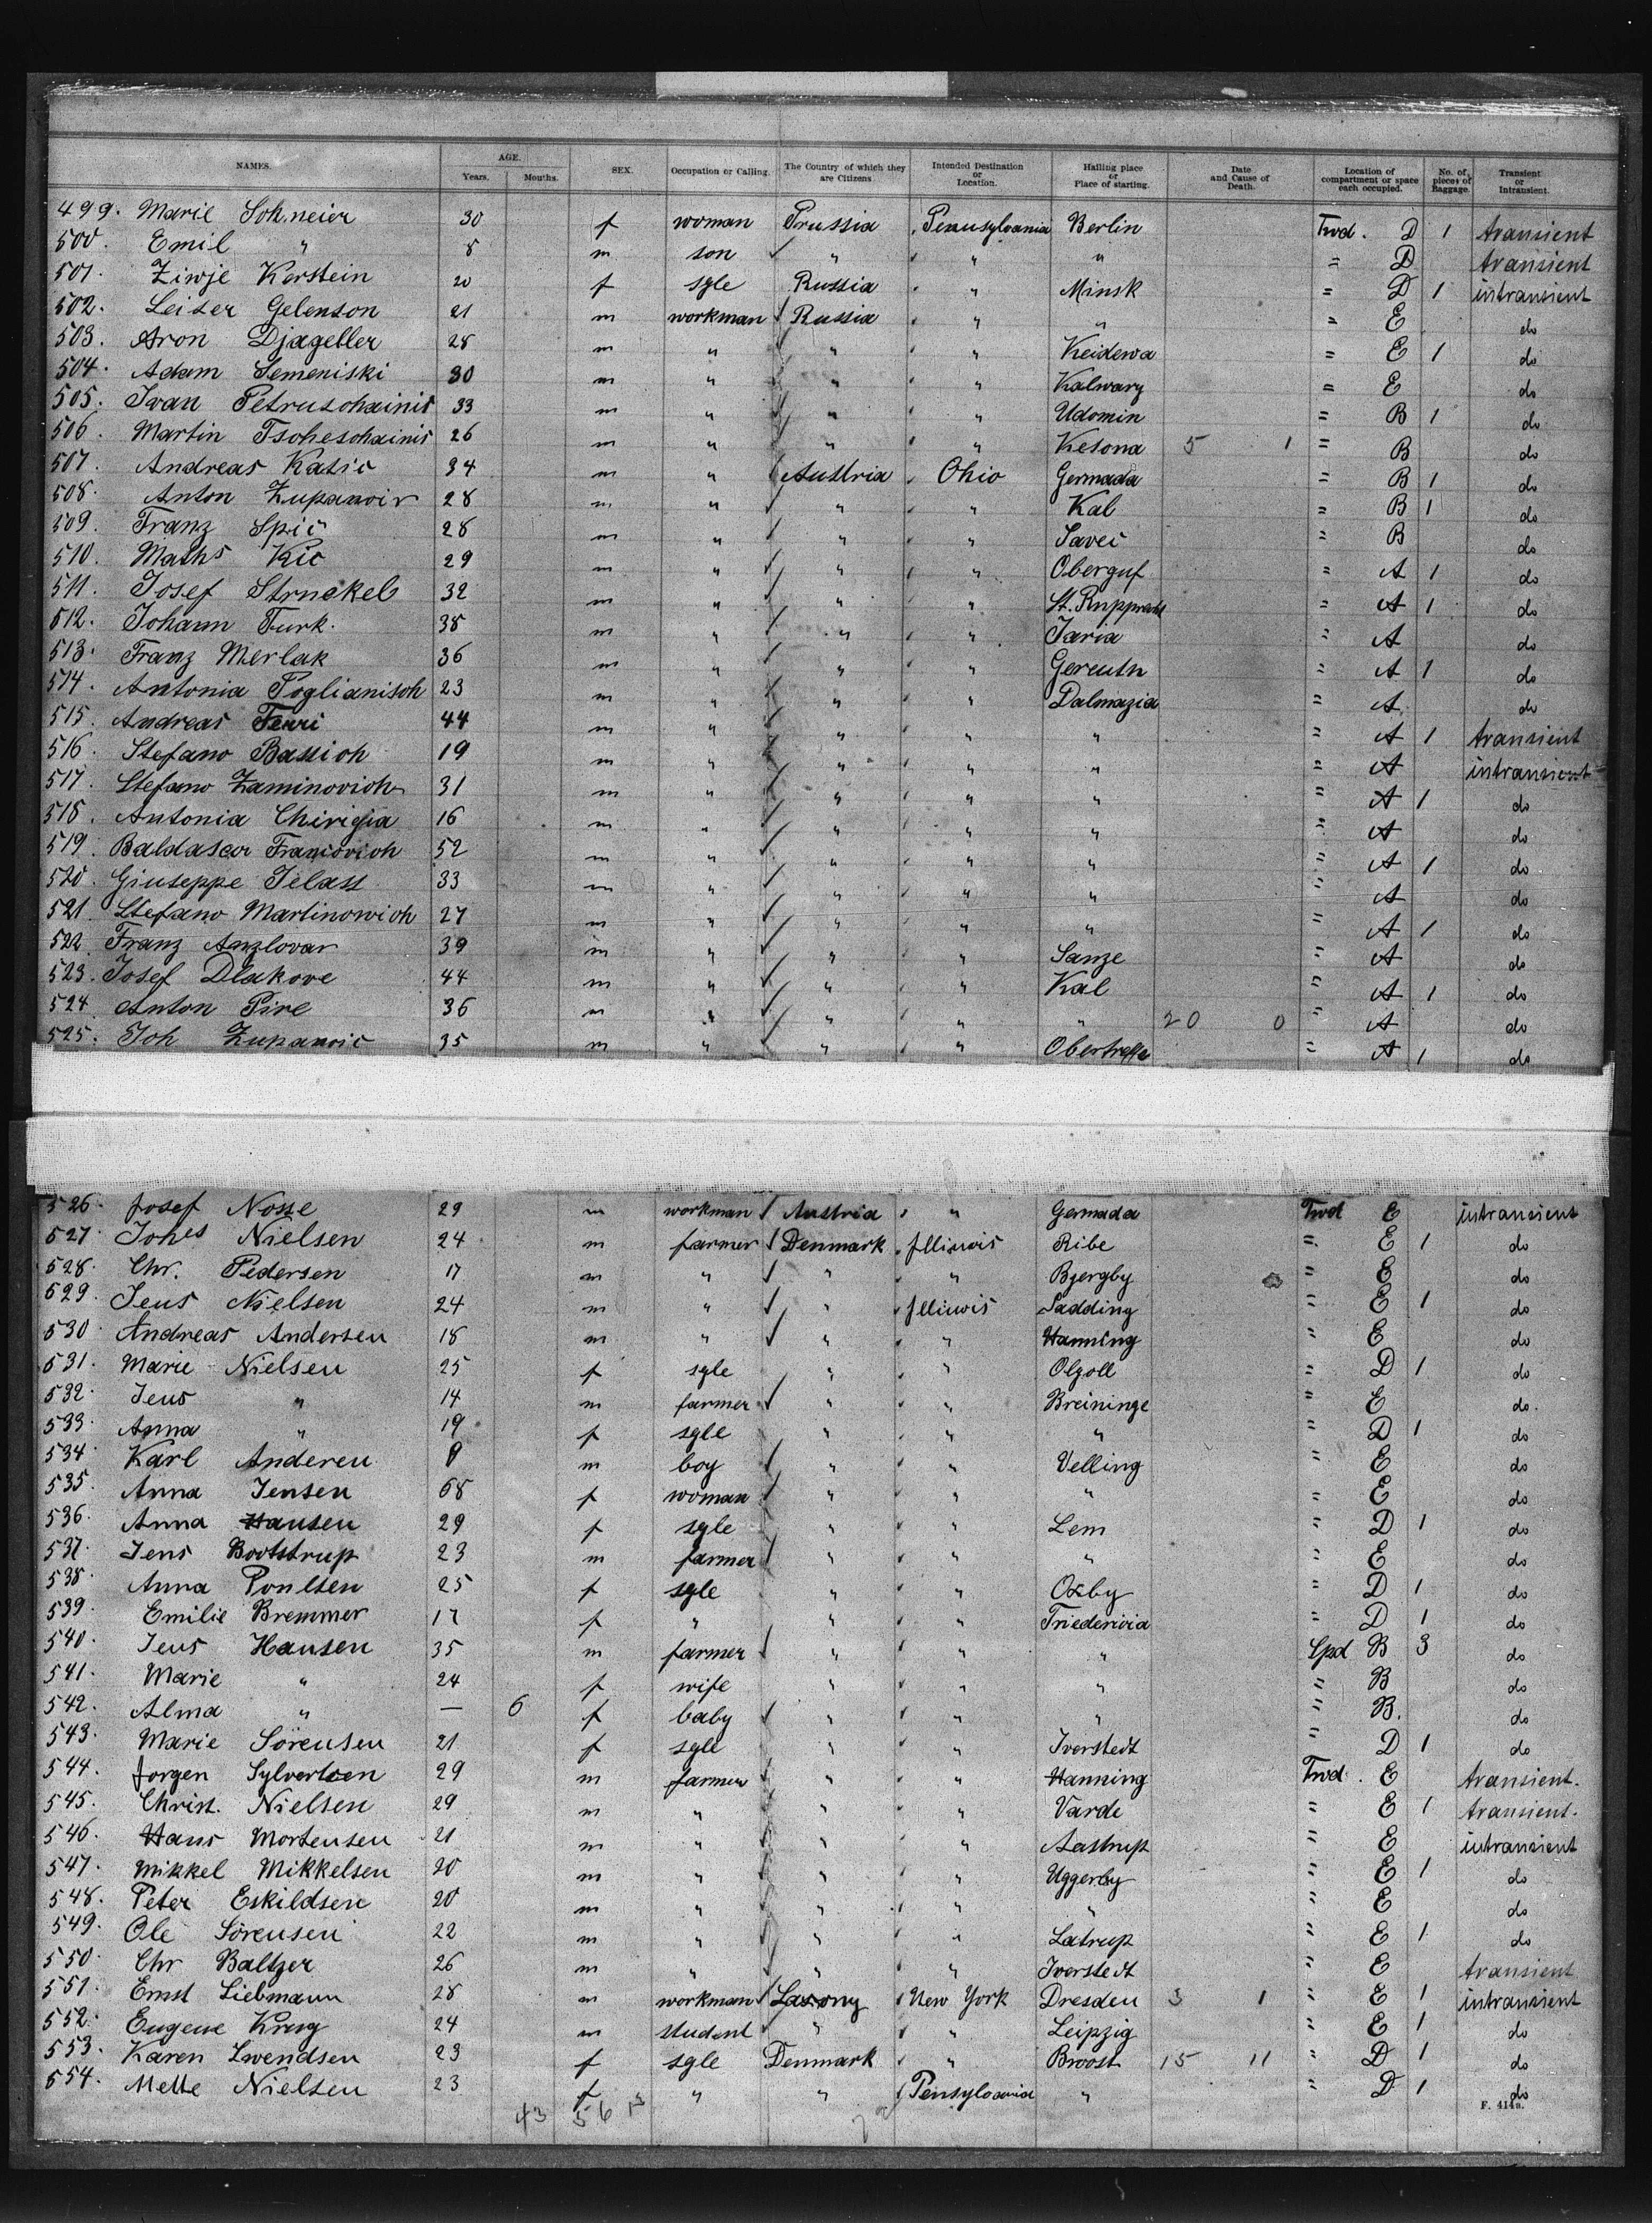 NAMES. AGE. Years. Months. SEX. Occupation or Calling. The Country of which they are Citizens Intended Destination or Location. Hailing place or Place of starting. Date and Cause of Death. Location of compartment or space each occupied. No. of pieces of Baggage. Transient or Intransient.
499. Marie Schneier 30 f woman Prussia Pennsylvania Berlin Twd. D 1 transient
500. Emil " 8 m son " " " = D transient
501. Ziwje Kerstein 20 f sgle Russia " Minsk = D 1 intransient
502. Leiser Gelenson 21 m workman Russia " " = E do
503. Aron Djageller 28 m " " " Keidewa = E 1 do
504. Adam Semeniski 30 m " " " Kalwary = E do
505. Ivan Petruschainis 33 m " " " Udomin = B 1 do
506. Martin Tscheschainis 26 m " " " Kesona 5 1 = B do
507. Andreas Kasic 34 m " Austria Ohio Germada = B 1 do
508. Anton Zupanoir 28 m " " " Kal = B 1 do
509. Franz Spic 28 m " " " Savei = B do
510. Maths Kic 29 m " " " Oberguf = A 1 do
511. Josef Struckel 32 m " " " St. Rupprecht = A 1 do
512. Johann Turk. 38 m " " " Jaria = A do
513. Franz Merlak 36 m " " " Gereuth = A 1 do
514. Antonia Poglianisch 23 m " " " Dalmazia = A do
515. Andreas Ferri 44 m " " " " = A 1 transient
516. Stefano Bassich 19 m " " " " = A intransient
517. Stefano Zaminovich 31 m " " " " = A 1 do
518. Antonia Chirigia 16 m " " " " = A do
519. Baldascar Franiovich 52 m " " " " = A 1 do
520. Giuseppe Jelass 33 m " " " " = A do
521. Stefano Martinowich 27 m " " " " = A 1 do
522. Franz Anzlovar 39 m " " " Sanze = A do
523. Josef Dlakove 44 m " " " Kal = A 1 do
524. Anton Pire 36 m " " " " 20 0 = A do
525. Joh Zupanoic 35 m " " " Obertreffe = A 1 do
526. Josef Nosse 29 m workman Austria " Germada Twd E intransient
527. Johes Nielsen 24 m farmer Denmark Illinois Ribe = E 1 do
528. Chr. Pedersen 17 m " " " Bjergby = E do
529. Jens Nielsen 24 m " " Illinois Sadding = E 1 do
530. Andreas Andersen 18 m " " " Hanning = E do
531. Marie Nielsen 25 f sgle " " Olgoll = D 1 do
532. Jens " 14 m farmer " " Breininge = E do.
533. Anna " 19 f sgle " " " = D 1 do
534. Karl Anderen 9 m boy " " Velling = E do
535. Anna Jensen 68 f woman " " " = E do
536. Anna Hansen 29 f sgle " " Lem = D 1 do
537. Jens Bootstrup 23 m farmer " " " = E do
538. Anna Poulsen 25 f sgle " " Oxby = D 1 do
539. Emilie Bremmer 17 f " " " Friedericia = D 1 do
540. Jens Hansen 35 m farmer " " " Cpd B 3 do
541. Marie " 24 f wife " " " = B do
542. Alma " — 6 f baby " " " = B. do
543. Marie Sörensen 21 f sgle " " Iverstedt = D 1 do
544. Jorgen Sylvertsen 29 m farmer " " Hanning Twd. E transient.
545. Christ. Nielsen 29 m " " " Varde = E 1 transient.
546. Hans Mortensen 21 m " " " Aastrup = E intransient
547. Mikkel Mikkelsen 20 m " " " Uggerby = E 1 do
548. Peter Eskildsen 20 m " " " " = E do
549. Ole Sörensen 22 m " " " Latrup = E 1 do
550. Chr Baltzer 26 m " " " Iverstedt = E transient
551. Ernst Liebmann 28 m workman Saxony New York Dresden 3 1 = E 1 intransient
552. Eugene Krug 24 m student " " Leipzig = E 1 do
553. Karen Swendsen 23 f sgle Denmark " Broost 15 11 = D 1 do
554. Mette Nielsen 23 f " " Pensylvania " = D 1 do
43 56
F. 414a.